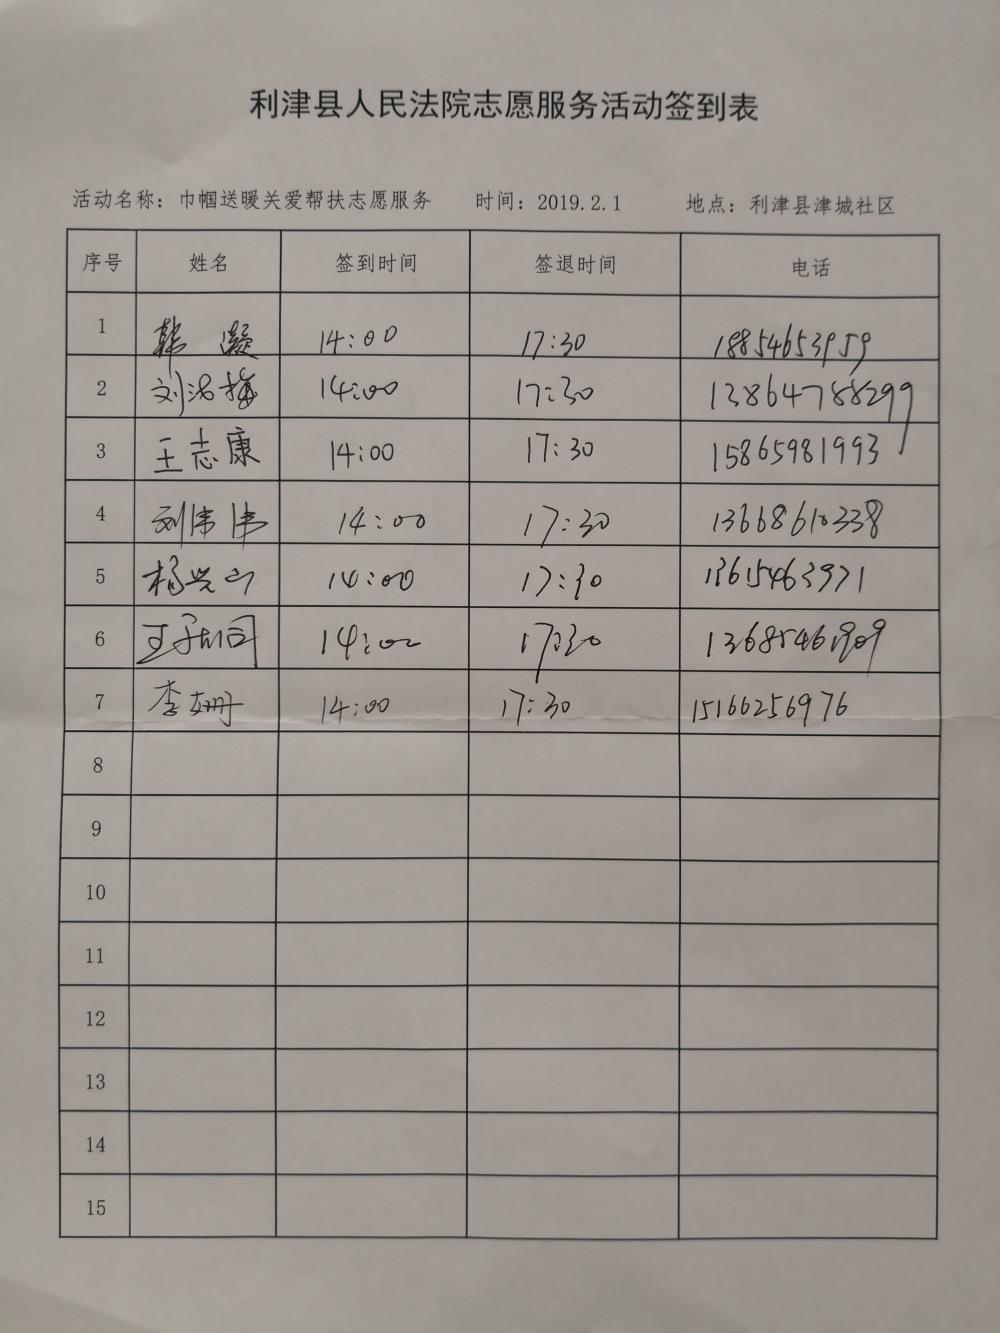 利津县人民法院志愿服务活动签到表
活动名称：巾帼送暖关爱帮扶志愿服务 时间：2019.2.1 地点：利津县津城社区
序号 姓名 签到时间 签退时间 电话
1 韩凝 14:00 17:30 18854653959
2 14:00 17:30 13864788299
3 王志康 14:00 17:30 15865981993
4 刘伟伟 14:00 17:30 13668610338
5 杨兴山 14:00 17:30 13615463971
6 14:00 17:30 13685461909
7 李姗 14:00 17:30 15166256976
8
9
10
11
12
13
14
15